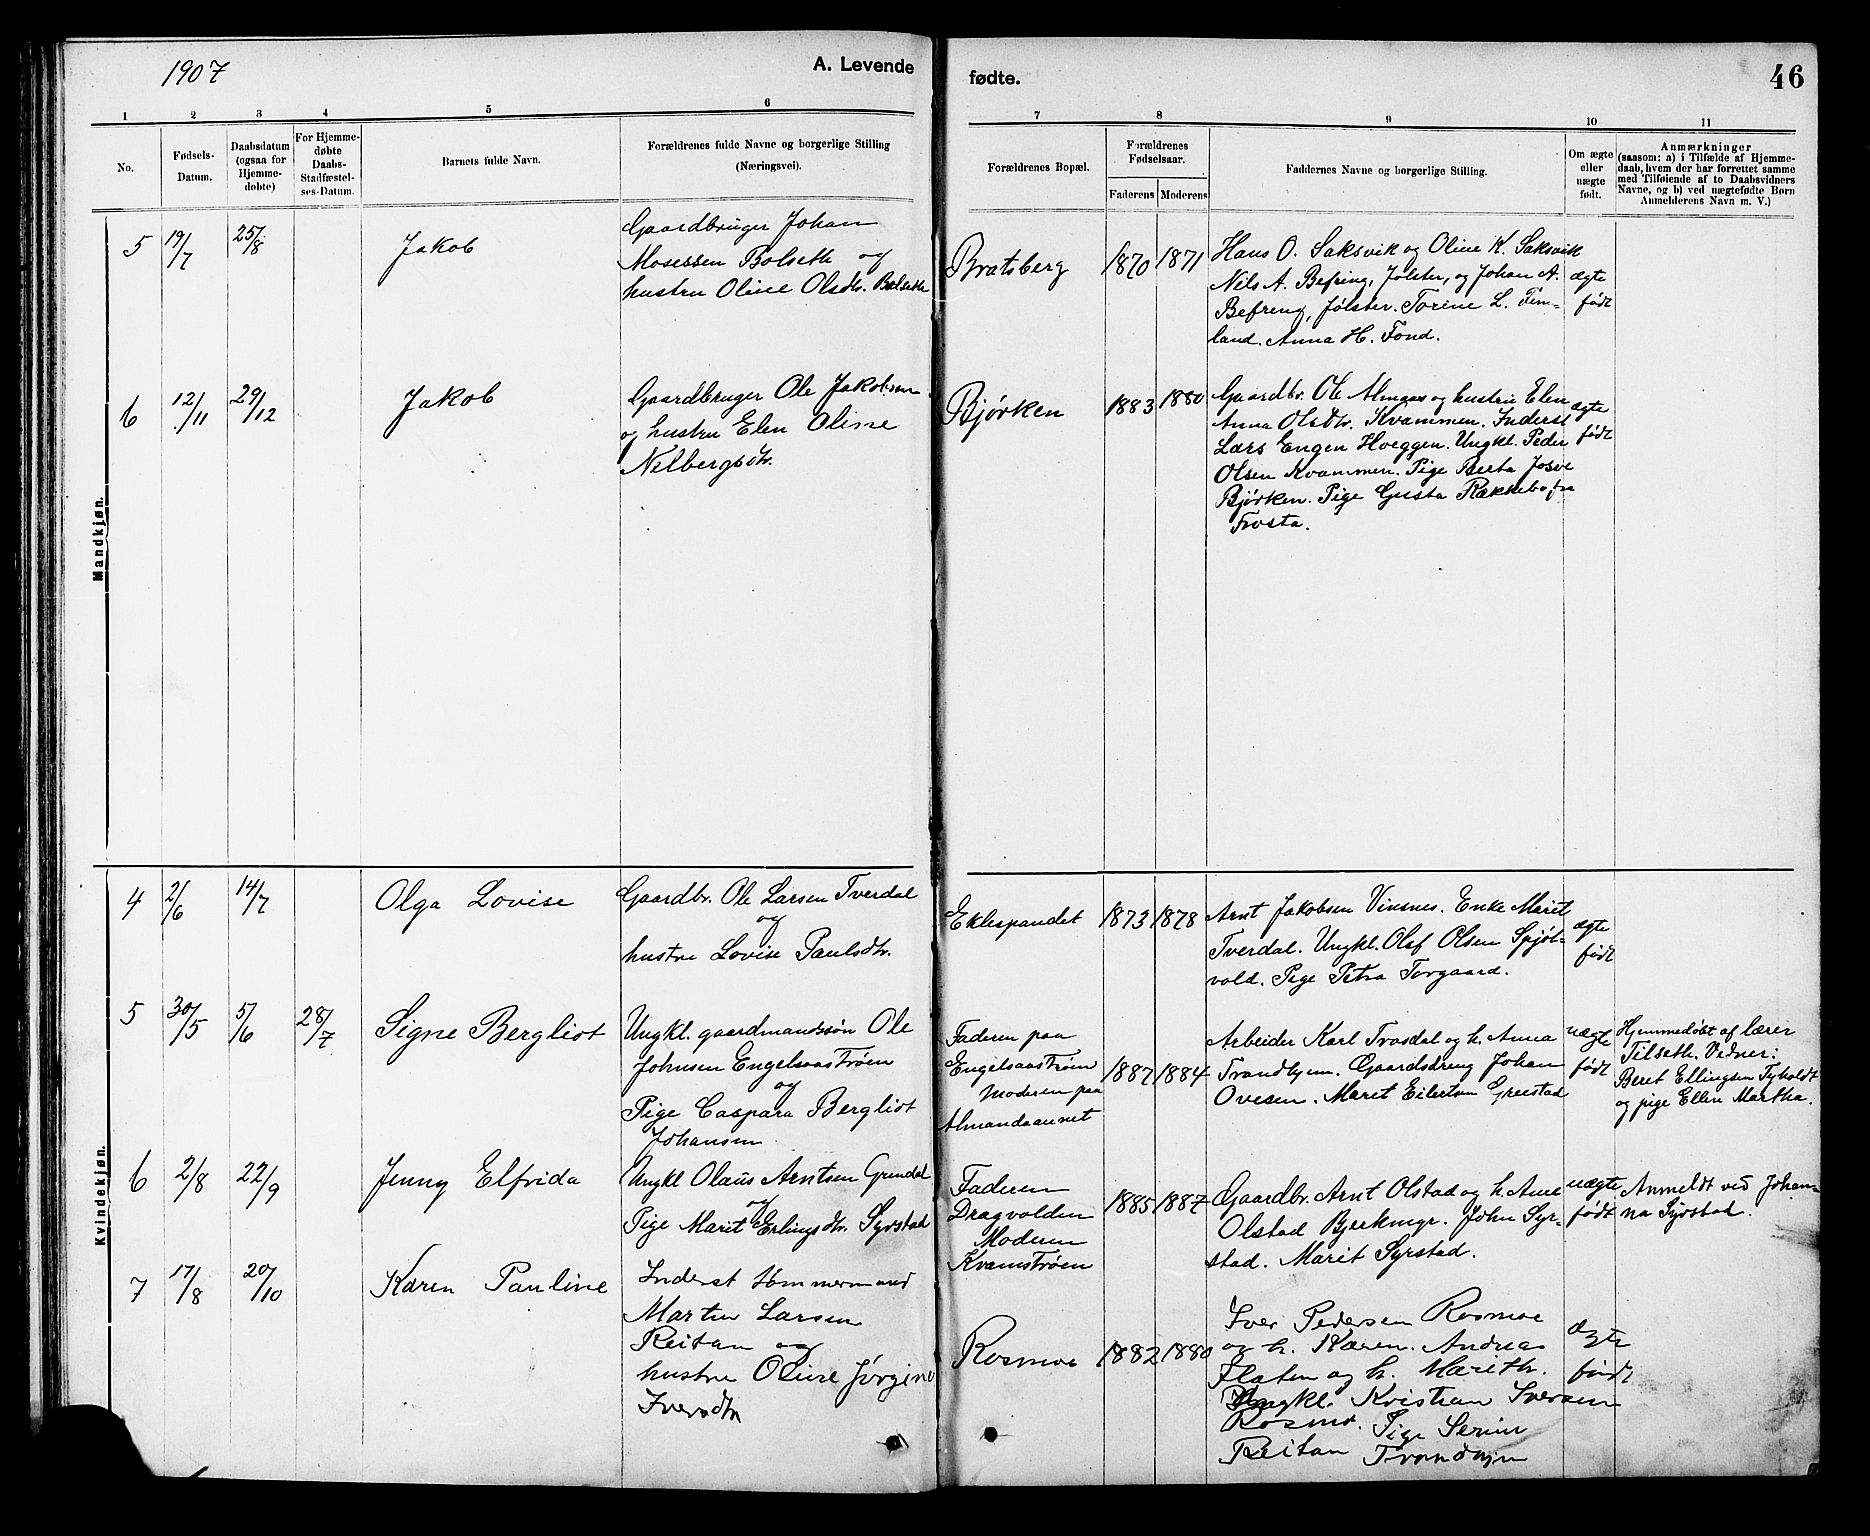 1907
A. Levende
fødte.
46
1 2 3 4 5 6 7 8 9 10 11
No.
Fødsels-
Datum.
Daabsdatum
(ogsaa for
Hjemme-
døbte)
For Hjemme-
døbte
Daabs-
Stadfæstel-
ses-Datum.
Barnets fulde Navn.
Forældrenes fulde Navne og borgerlige Stilling
(Næringsvei).
Forældrenes Bopæl.
Forældrenes
Fødselsaar.
Faderens Moderens
Faddernes Navne og borgerlige Stilling.
Om ægte
eller
uægte
født.
Anmærkninger
(saasom: a) i Tilfælde af Hjemme-
daab, hvem der har forrettet samme
med Tilføiende af to Daabsvidners
Navne, og b) ved uægtefødte Børn
Anmelderens Navn m. V.)
Mandkjøn.
5
19/7
25/8
Jakob
Gaardbruger Johan
Mosessen Bolseth og
hustru Oline Olsdtr. Bolseth
Bratsberg
1870
1871
Hans O. Saksvik og Oline K. Saksvik
Nils A. Befring, Jølster, og Johan A.
Befreng, Jølster. Torine L. Tem-
land. Anna H. Fond.
ægte
født
6
12/11
29/12
Jakob
Gaardbruger Ole Jakobsen
og hustru Elen Oline
Nelbergsdtr.
Bjørken
1883
1880
Gaardbr. Ole Almaas og hustru Elen
Anna Olsdtr. Kvammen. Inderst
Lars Engen Hoeggen. Ungkl. Peder
Olsen Kvammen. Pige Berta Josve
Bjørken. Pige Gusta
Frosta.
ægte
født
Kvindekjøn.
4
2/6
14/7
Olga Lovise
Gaardbr. Ole Larsen Tverdal
og
hustru Lovise Paulsdtr.
Eklespandet
1873
1878
Arnt Jakobsen Vinsnes. Enke Marit
Tverdal. Ungkl. Olaf Olsen Spjøt-
vold. Pige Petra Torgaard.
ægte
født
5
30/5
5/6
28/7
Signe Bergliot
Ungkl. gaardmandssøn Ole
Johnsen Engelsaastrøen
og
Pige Caspara Bergliot
Johansen
Faderen paa
Engelsaastrøen
Moderen paa
Almandaaunet
1887
1884
Arbeider Karl Trosdal og h. Anna
Trondhjem. Gaardsdreng Johan
Ovesen. Marit Eilertsen Greistad
uægte
født
Hjemmedøbt af lærer
Tilseth. Vidner:
Beret Ellingsen Tyholdt
og pige Ellen Martha.
6
2/8
22/9
Jenny Elfrida
Ungkl Olaus Arntsen Grendal
og
Pige Marit Erlingsdtr. Syrstad
Faderen
Dragvolden
Moderen
Kvamstrøen
1885
1887
Gaardbr. Arnt Olstad og h. Ane
Olstad Bjerkmyr. John Syr-
stad. Marit Syrstad.
uægte
født
Anmeldt ved Johan-
na Syrstad.
7
17/8
20/10
Karen Pauline
Inderst tømmermand
Martin Larsen
Reitan og
hustru Oline Jørgine
Iversdtr
Rosmoe
1882
1880
Iver Pedersen Rosmoe
og h. Karen. Andreas
Flaten og h. Marith.
Ungkl. Kristian Iversen
Rosmo. Pige Serine
Reitan Trondhjem
ægte
født